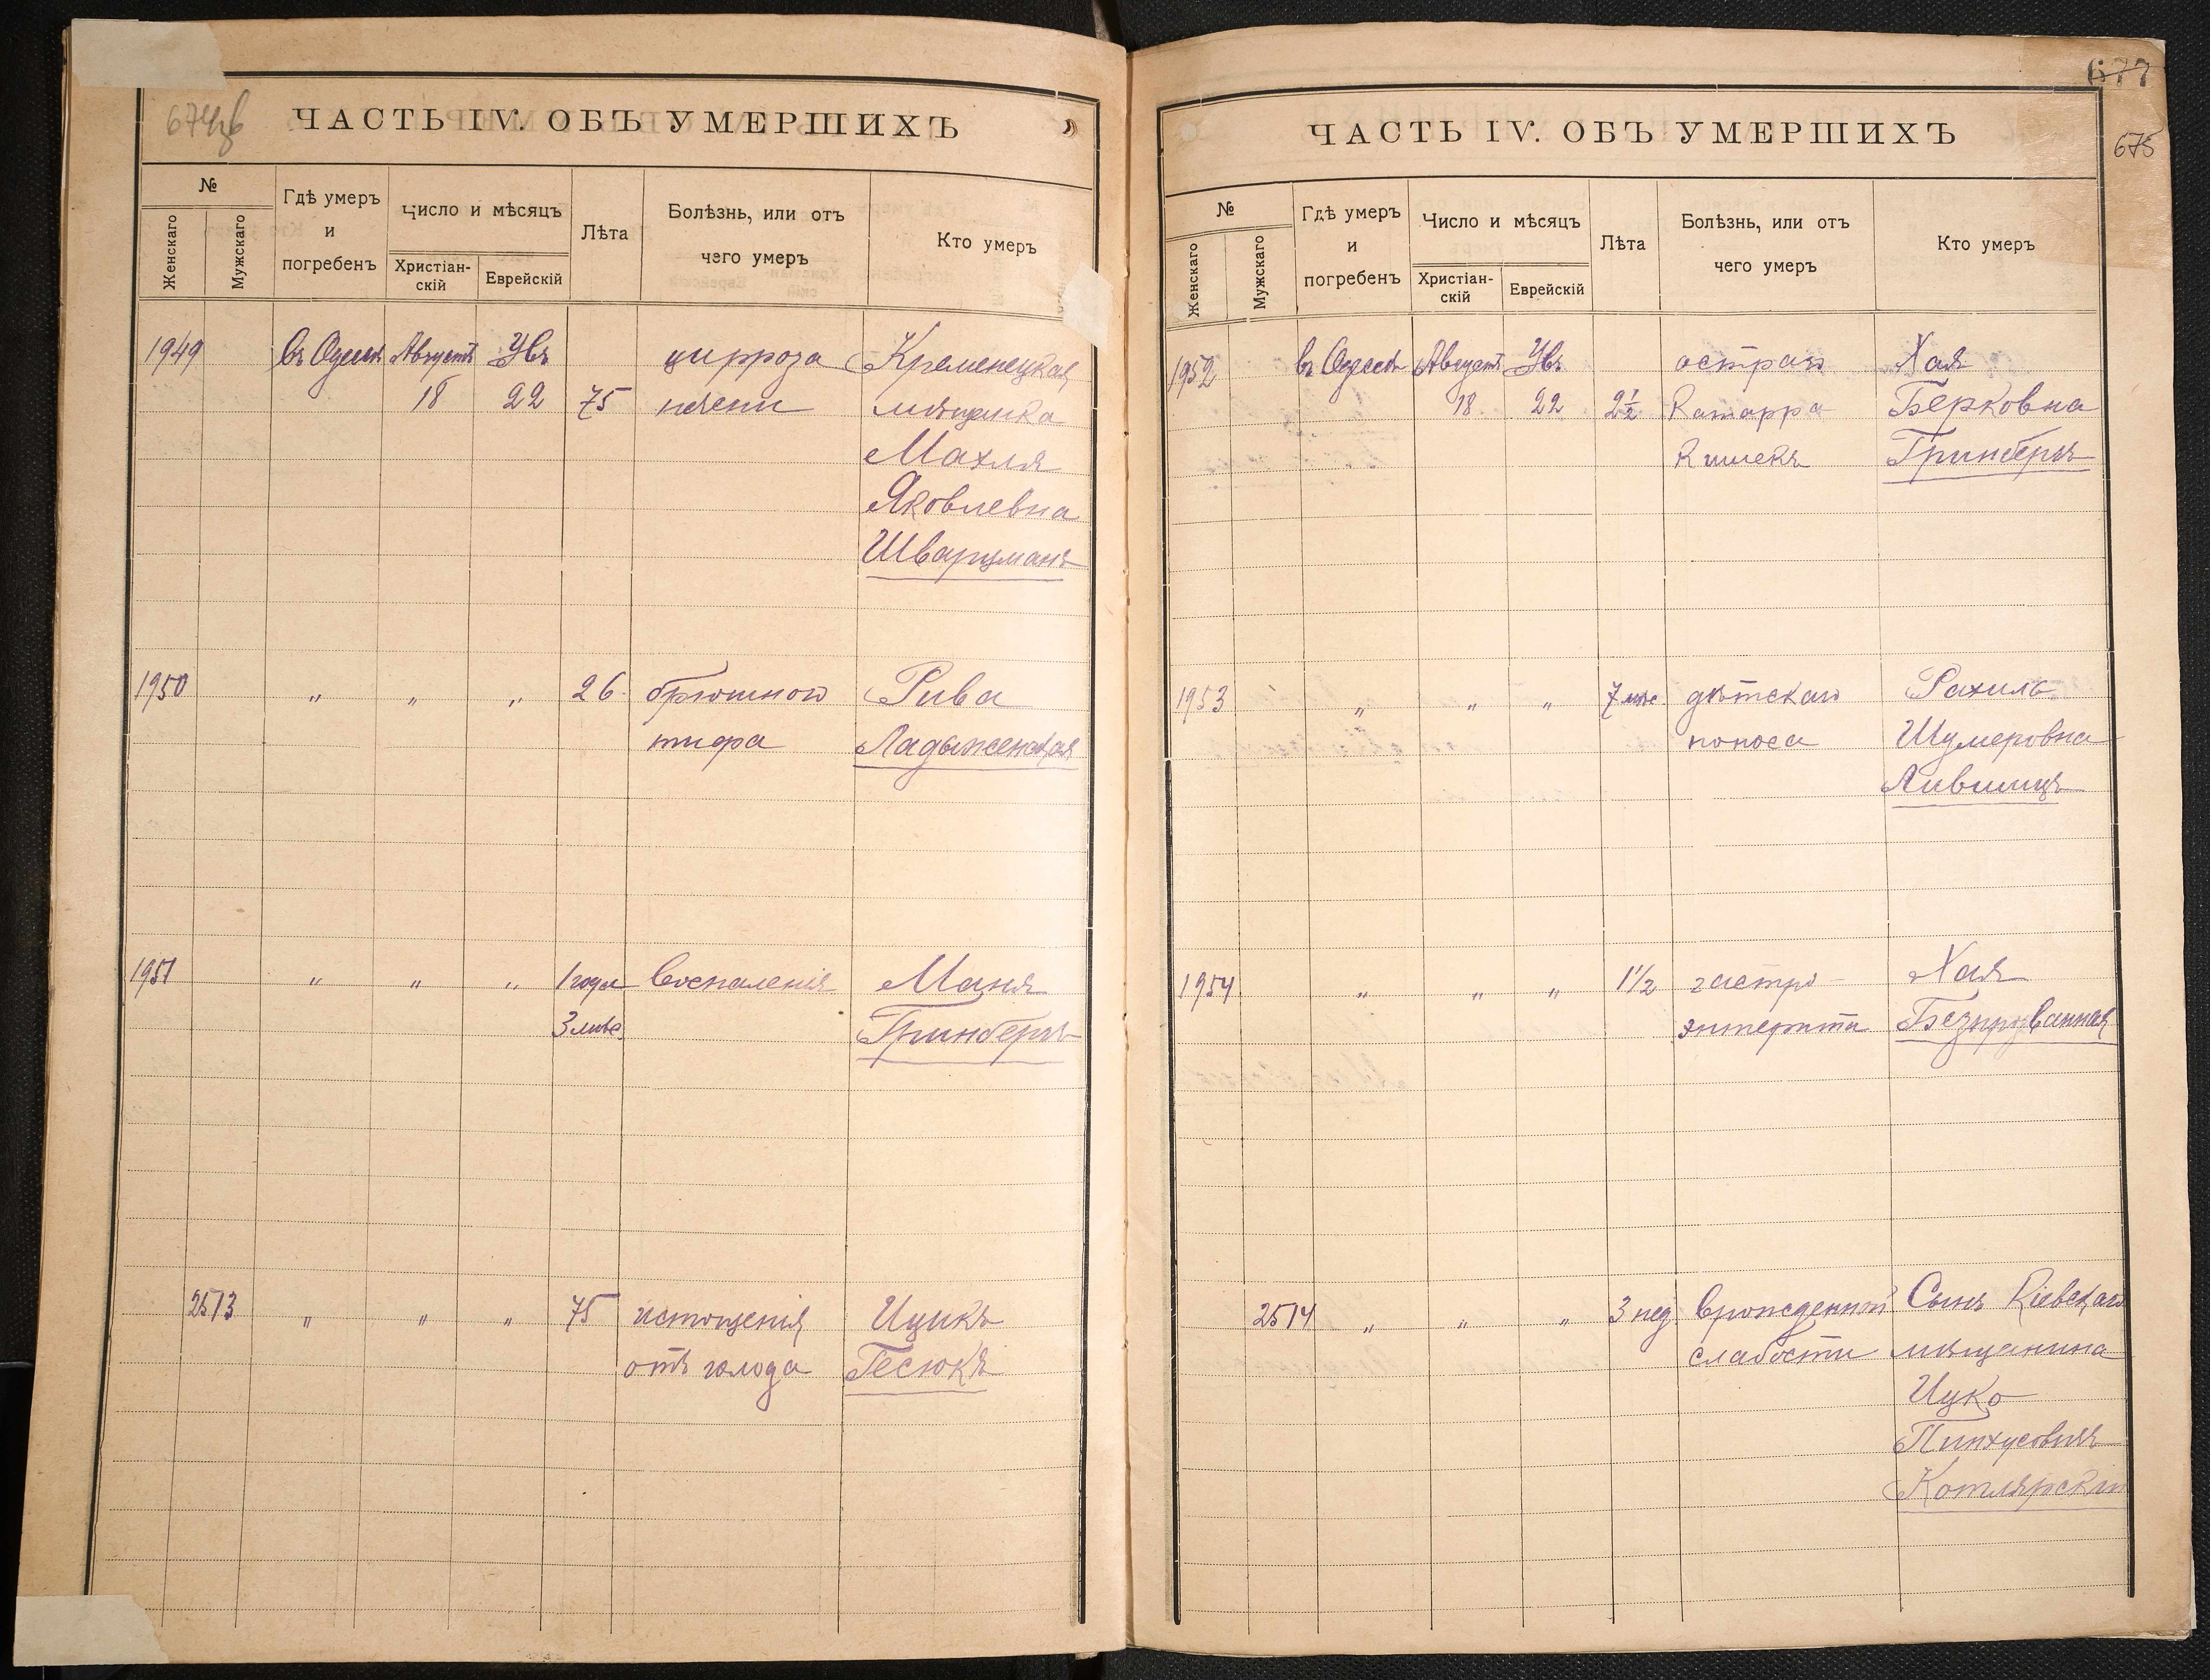 674об
ЧАСТЬ IV. ОБЪ УМЕРШИХЪ
№
Женскаго
Мужскаго
Гдѣ умеръ
и
погребенъ
Число и мѣсяцъ
Христіан-
скій
Еврейскій
Лѣта
Болѣзнь, или отъ
чего умеръ
Кто умеръ
1949 въ Одессѣ Августъ цирроза Кременецкая
18 22 75 печени мѣщанка
Махля
Яковлевна
Шварцманъ
1950 " " " 26 брюшного Рива
тифа Ладыженская
1951 " " " 1 года Воспаленія Маня
3 мѣс. Гринбергъ
2513 " " " 75 истощенія Ицикъ
отъ голода Гесюкъ
677
675
ЧАСТЬ IV. ОБЪ УМЕРШИХЪ
№
Женскаго
Мужскаго
Гдѣ умеръ
и
погребенъ
Число и мѣсяцъ
Христіан-
скій
Еврейскій
Лѣта
Болѣзнь, или отъ
чего умеръ
Кто умеръ
1952 въ Одессѣ Августъ остраго Хая
18 22 2 1/2 Катарра Берковна
Кишекъ Гринбергъ
1953 " " " 7 мѣс. дѣтскаго Рахиль
поноса Шумеровна
Лившицъ
1954 " " " 1 1/2 гастро-
Хая
энтерита
2514 " " " 3 нед. Врожденной Сынъ Кіевскаго
слабости мѣщанина
Ицко
Пинхусовичъ
Котлярскій